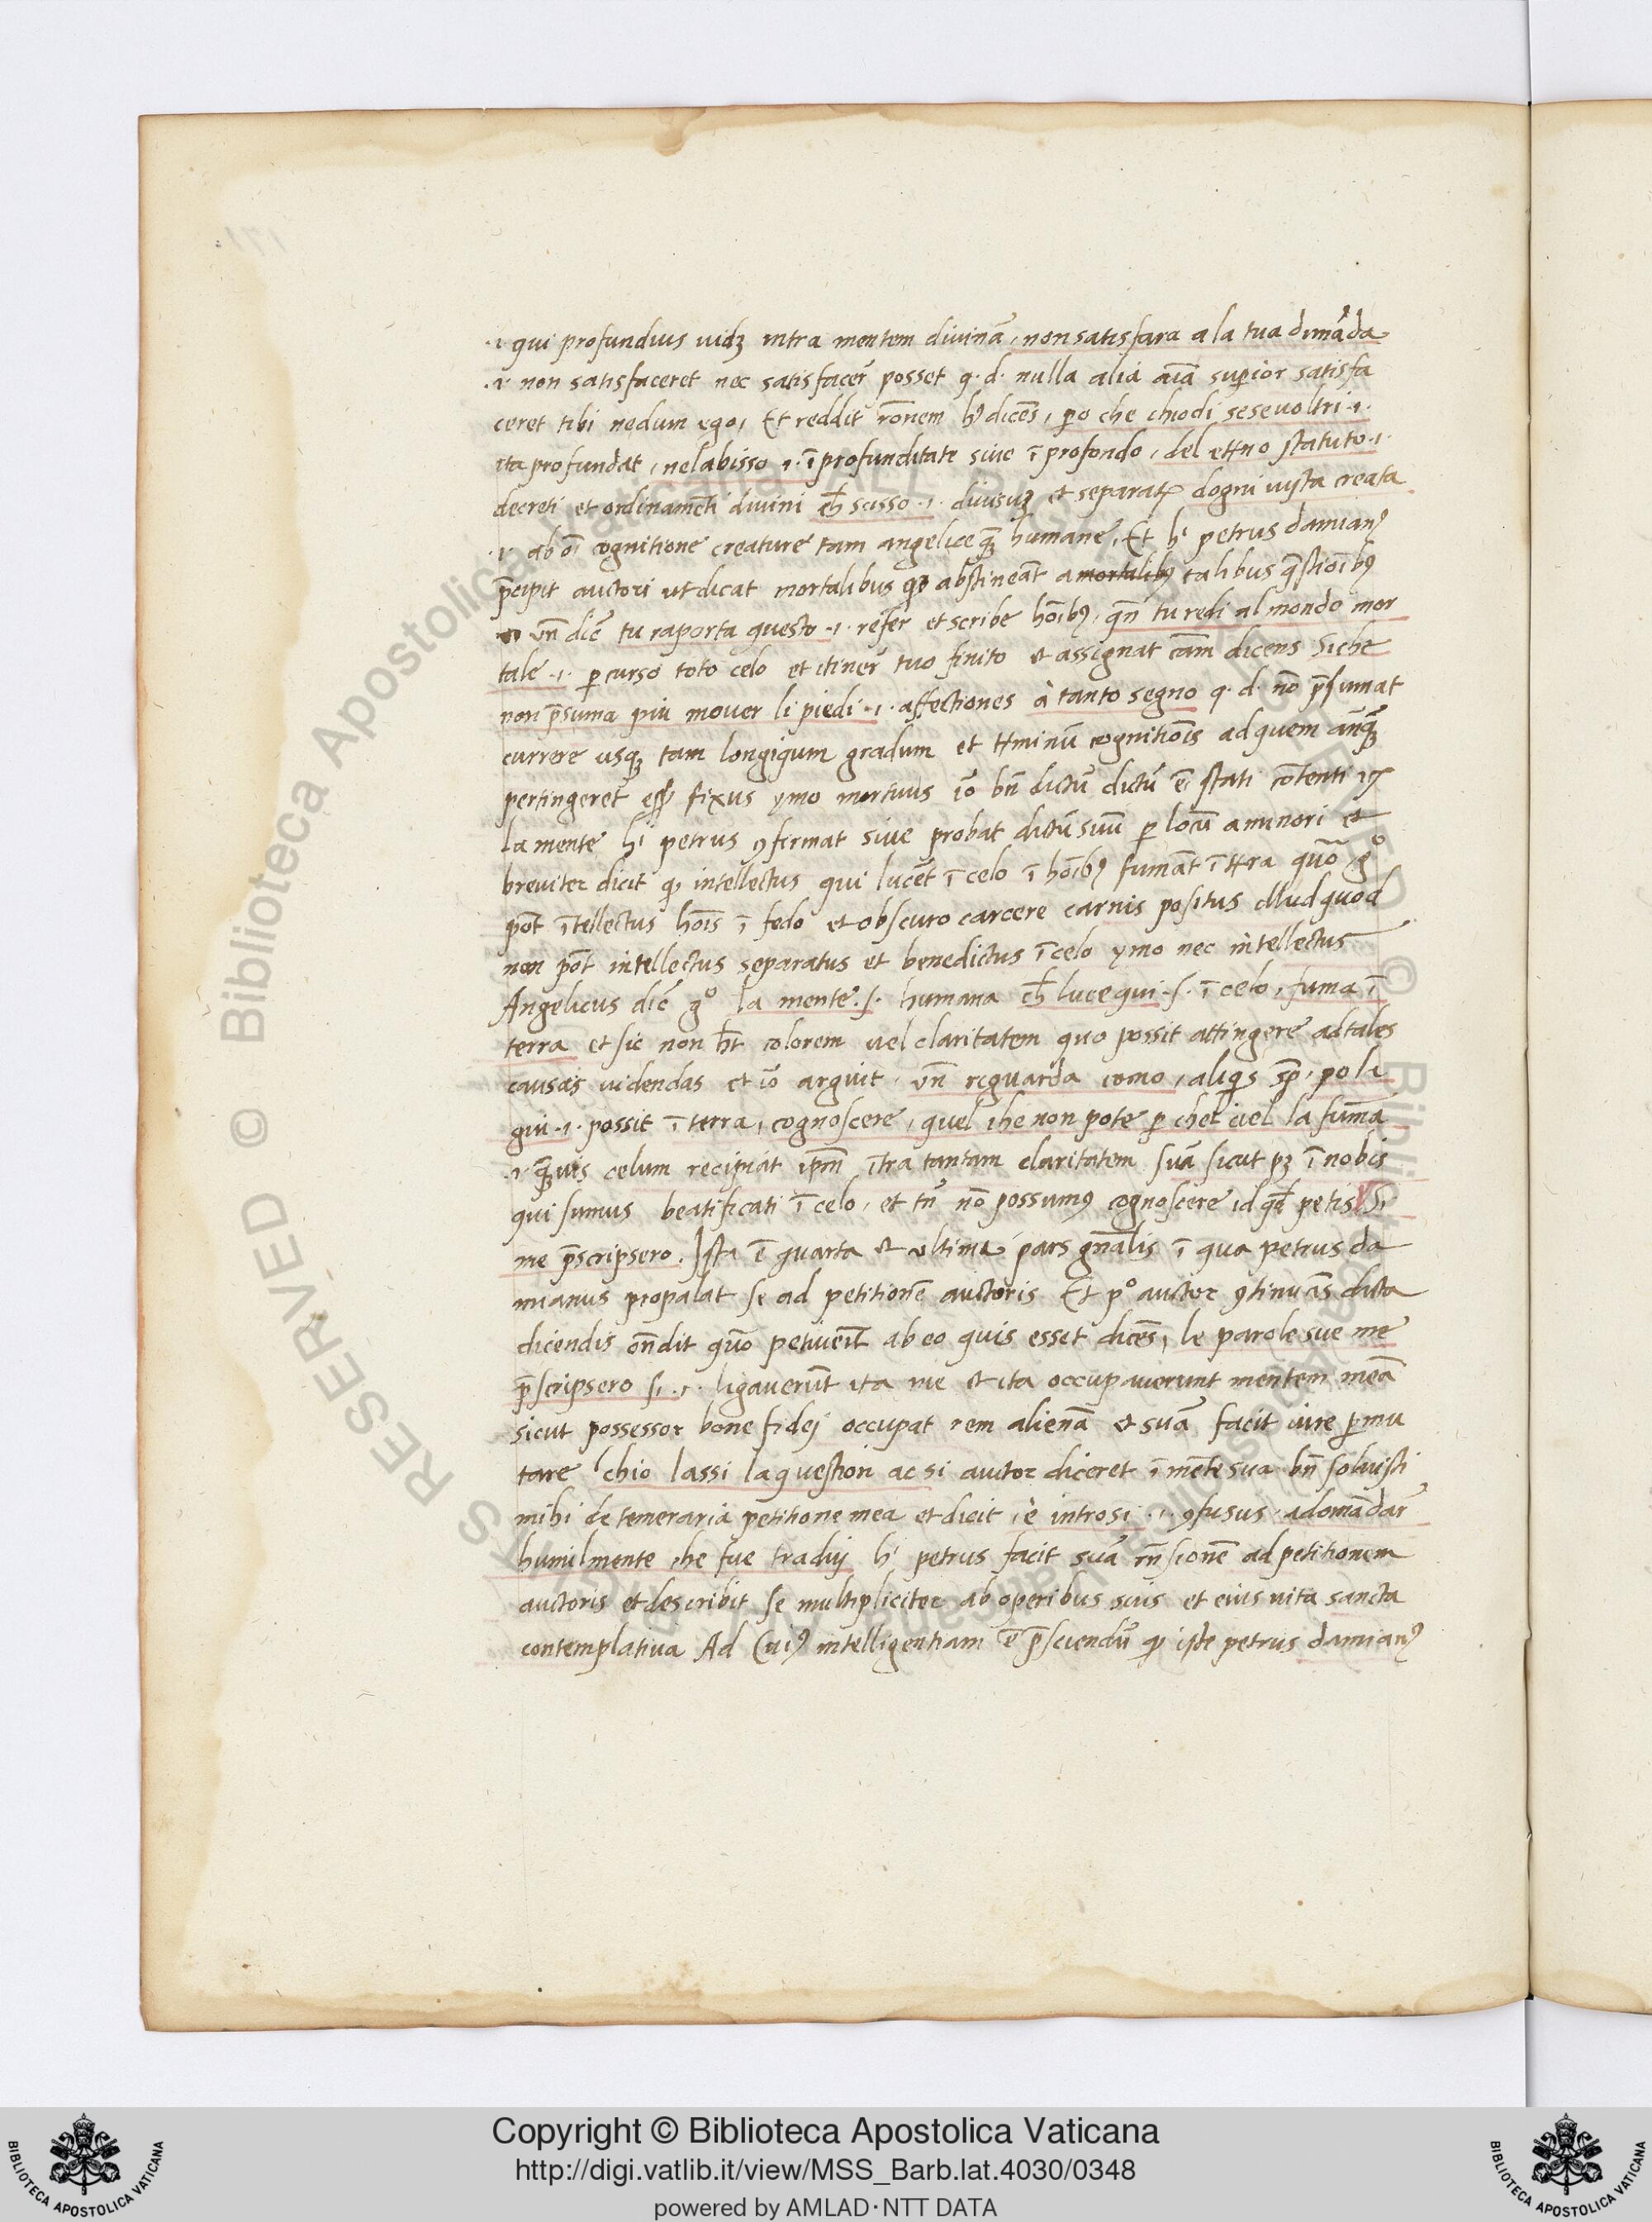 .i. qui profundius uidꝫ intra mentem diuinā, non satisfara a la tua dimāda
.i. non satisfaceret nec satisfacer̄ posset q. d. nulla alia aīa suꝑior satisfa
ceret tibi nedum ego, Et reddit rōnem hꝰ dicēs, ꝑo che chiodi se seuoltri .i.
ita profundat, nel abisso .i. ī profunditate siue ī profondo, del etꝉno statuto .i.
decreti et ordinamēti diuini ch̄ scisso .i. diuisuꝫ et separatꝫ dogni uista creata
.i. ab oī cognitione creature tam angelice qꝫ humane, Et hⁱ petrus damianꝰ
p̄cipit auctori ut dicat mortalibus ꝙ abstineāt a mortalibꝰ talibus q̄stioībꝰ
vn̄ dic̄ tu raporta questo .i. refer̄ et scribe hoībꝰ, qn̄ tu redi al mondo mor
tale .i. ꝑcurso toto celo et itiner̄ tuo finito et assignat cām dicens Siche
non p̄suma piu mouer li piedi .i. affectiones à tanto segno q. d. nō p̄sumat
currere usqꝫ tam gradum et tꝉminū cognitiōis ad quem
pertingeret fixus ymo mortuus iō bn̄ dictū dictū ē, stati cōtenti
la mente hⁱ petrus ꝯfirmat siue probat dictū suū ꝑ locū a minori et
breuiter dicit ꝙ intellectus qui lucēt ī celo ī hoībꝰ fumāt ī tꝉra quō gº
pōt ītellectus hoīs ī fedo et obscuro carcere carnis positus illud quod
non pōt intellectus separatus et benedictus ī celo ymo nec intellectus
Angelicus dic̄ gº la mente .s. humana ch̄ luce qui .s. ī celo, fuma ī
terra et sic non h̄t colorem uel claritatem quo possit attingere ad tales
causas uidendas et iō arguit, vn̄ riguarda como, aliqis sp̄, po la
giu .i. possit ī terra, cognoscere, quel che non pote ꝑ chel ciel la fum̄a
.i. qꝫuis celum recipiat ip̄m ītra tantam claritatem suā sicut pꝫ ī nobis
qui sumus beatificati ī celo, et tn̄ nō possumꝰ cognoscere id qd̄ petis Si
me p̄scripsero. Ista ē quarta et ultima pars gn̄alis ī qua petrus da
mianus propalat se ad petitionē auctoris Et pº auctor ꝯtinuās dicta
dicendis on̄dit quō petiuerit ab eo quis esset dicēs, le parole sue me
p̄scripsero si .i. ligauerūt ita me et ita occupauerunt mentem meā
sicut possessor bone fidej occupat rem alienā et suā facit iure ꝑmu
tare chio lassi la question ac si auctor diceret ī mēte sua bn̄ soluisti
mihi de temeraria petitione mea et dicit, è introsi .i. ꝯfusus, adomādar̄
humilmente, che fue tradij hⁱ petrus facit suā rn̄sionē ad petitionem
auctoris et describit se multipliciter ab operibus suis et eius uita sancta
contemplatiua Ad cuiꝰ intelligentiam ē p̄sciendū ꝙ iste petrus damianꝰ
© Biblioteca Apostolica Vaticana ALL RIGHTS RESERVED
Copyright © Biblioteca Apostolica Vaticana
http://digi.vatlib.it/view/MSS_Barb.lat.4030/0348
powered by AMLAD·NTT DATA
BIBLIOTECA APOSTOLICA VATICANA
BIBLIOTECA APOSTOLICA VATICANA